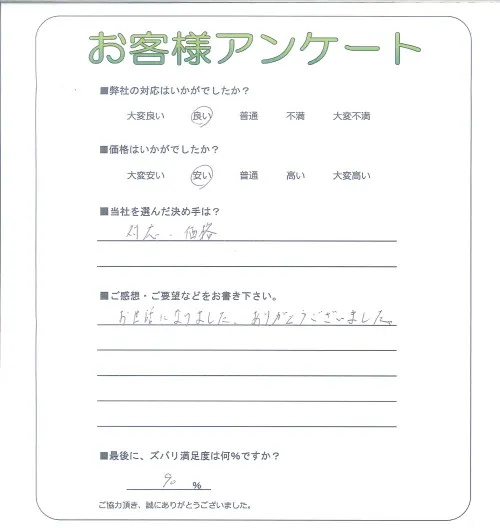 お客様アンケート
■弊社の対応はいかがでしたか？
大変良い 良い 普通 不満 大変不満
■価格はいかがでしたか？
大変安い 安い 普通 高い 大変高い
■当社を選んだ決め手は？
対応・価格
■ご感想・ご要望などをお書き下さい。
お世話になりました、ありがとうございました。
■最後に、ズバリ満足度は何%ですか？
90 %
ご協力頂き、誠にありがとうございました。